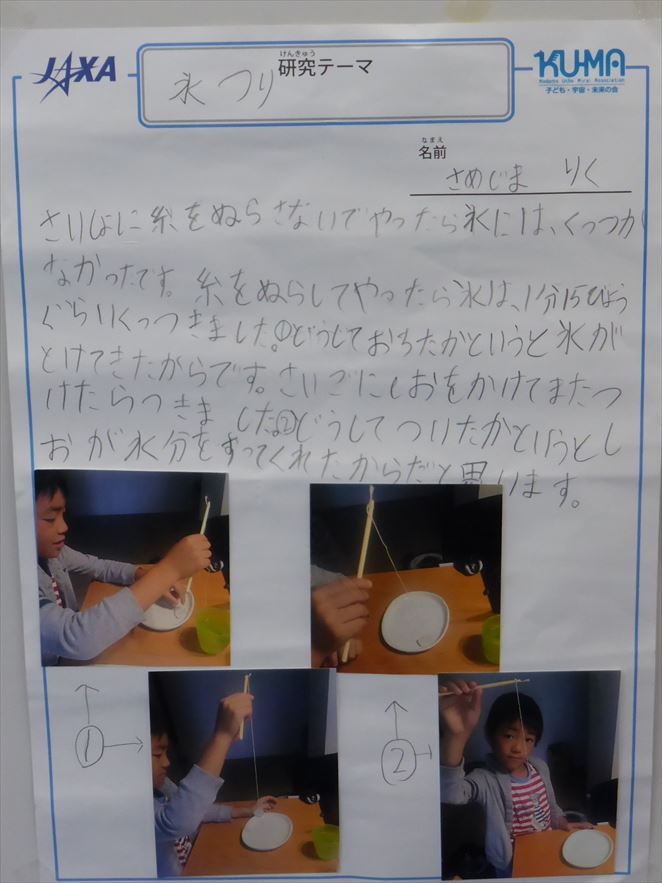 JAXA
けんきゅう
研究テーマ
氷つり
KU-MA
Kodomo Uchu Mirai Association
子ども・宇宙・未来の会
なまえ
名前
さめじま りく
さいしょに糸をぬらさないでやったら氷には、くっつか
なかったです。糸をぬらしてやったら氷は、1分15びょう
ぐらいくっつきました。①どうしておちたかというと氷が
とけてきたからです。さいごにしおをかけてまたつ
けたらつきました。②どうしてついたかというとし
おが水分をすってくれたからだと思います。
①
②